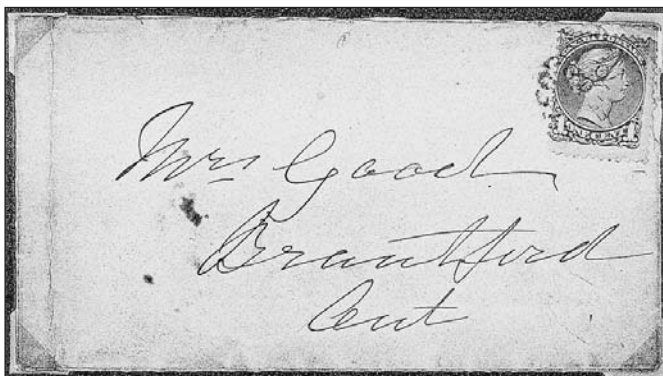 Mrs Good
Brantford
Ont